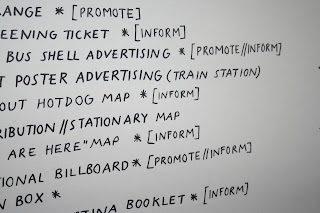 LANGE * [PROMOTE]
EENING TICKET * [INFORM]
BUS SHELL ADVERTISING * [PROMOTE//INFORM]
T POSTER ADVERTISING (TRAIN STATION)
OUT HOTDOG MAP * [INFORM]
RIBUTION//STATIONARY MAP
ARE HERE" MAP * [INFORM]
TIONAL BILLBOARD * [PROMOTE//INFORM]
N BOX *
BOOKLET * [INFORM]